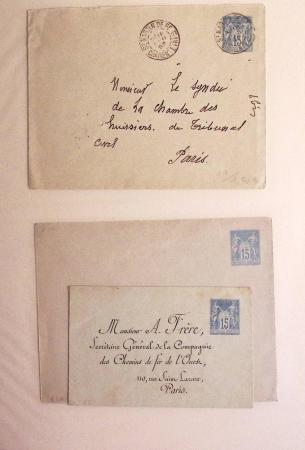 15
Monsieur le syndic
de la Chambre des
huissiers du Tribunal
Civil
Paris.
15
15
Monsieur A. Frère,
Secrétaire Général de la Compagnie
des Chemins de fer de l'Ouest,
110, rue Saint-Lazare,
Paris.